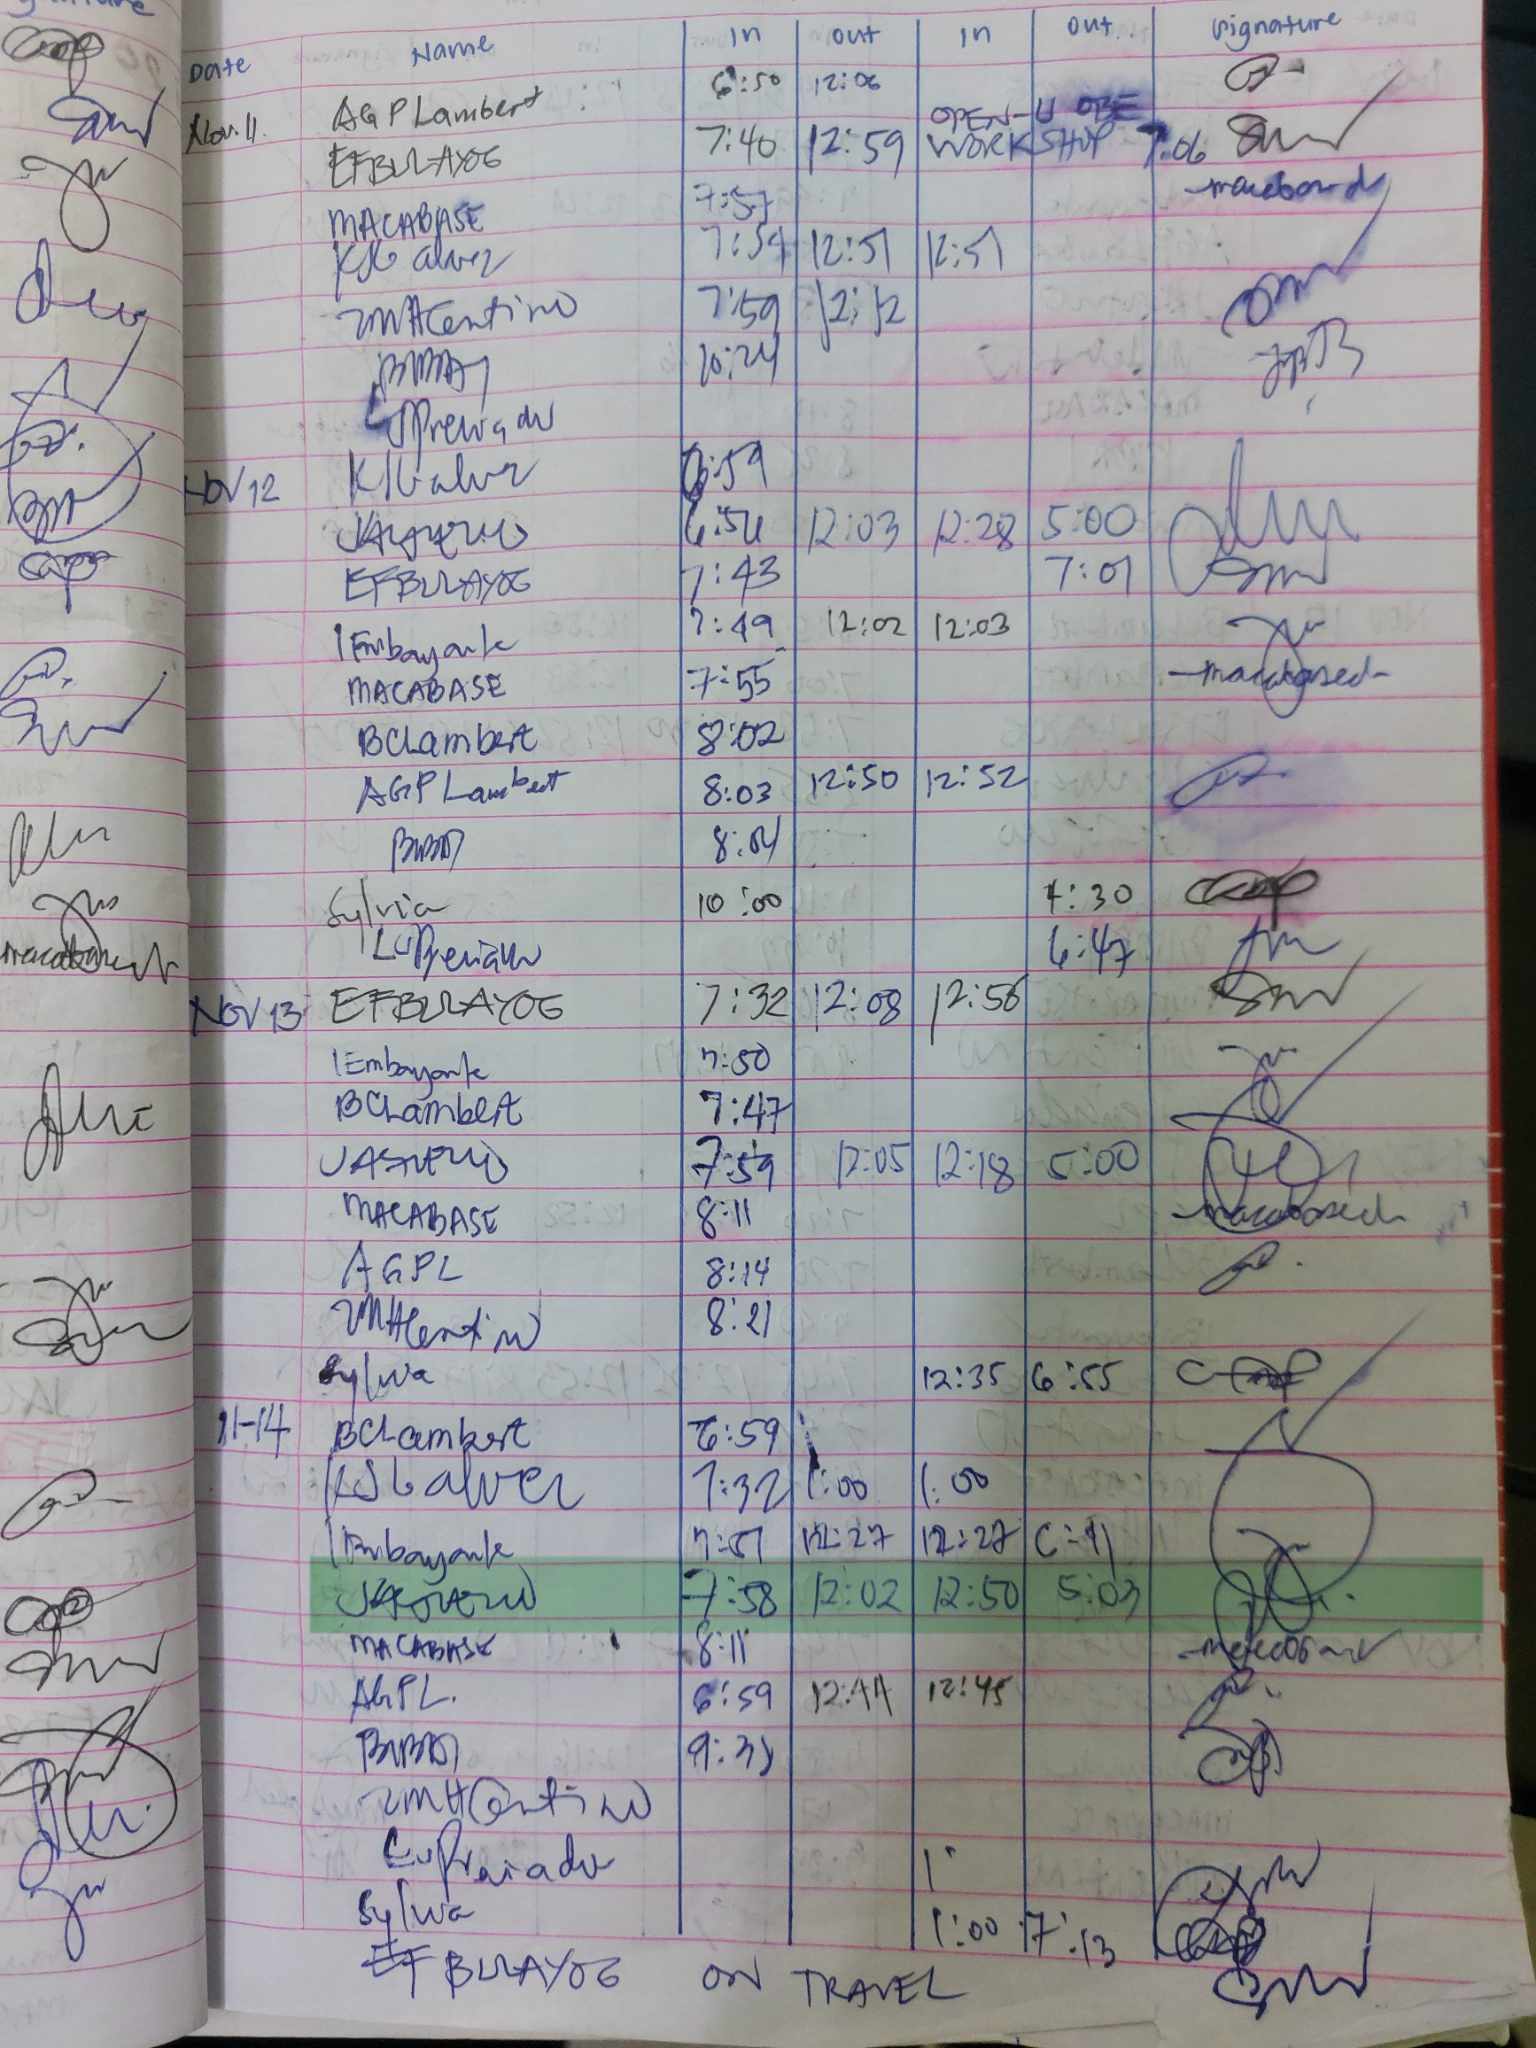 Date Name In out In out Signature
Nov. 11 AGPLambert 6:50 12:06
EFBULAYOG 7:40 12:59 OPEN-U OBE WORKSHOP 7:06
MACABASE 7:57
KSGalvez 7:54 12:51 12:51
ZMHCentino 7:59 12:12
10:24
LuPreciado
NOV 12 KSGalvez 6:59
6:54 12:03 12:28 5:00
EFBULAYOG 7:43 7:01
IEmbayarte 7:49 12:02 12:03
MACABASE 7:55
BCLambert 8:02
AGPLambert 8:03 12:50 12:52
8:04
Sylvia 10:00 4:30
LuPreciado 6:47
NOV 13 EFBULAYOG 7:32 12:08 12:56
IEmbayarte 7:50
BCLambert 7:47
7:59 12:05 12:18 5:00
MACABASE 8:11
AGPL 8:14
ZMHCentino 8:21
Sylvia 12:35 6:55
11-14 BCLambert 6:59
KSGalvez 7:32 1:00 1:00
IEmbayarte 7:51 12:27 12:27 6:11
7:58 12:02 12:50 5:03
MACABASE 8:11
AGPL. 6:59 12:44 12:45
9:31
ZMHCentino
LuPreciado
Sylvia 1:00 7:13
EFBULAYOG ON TRAVEL